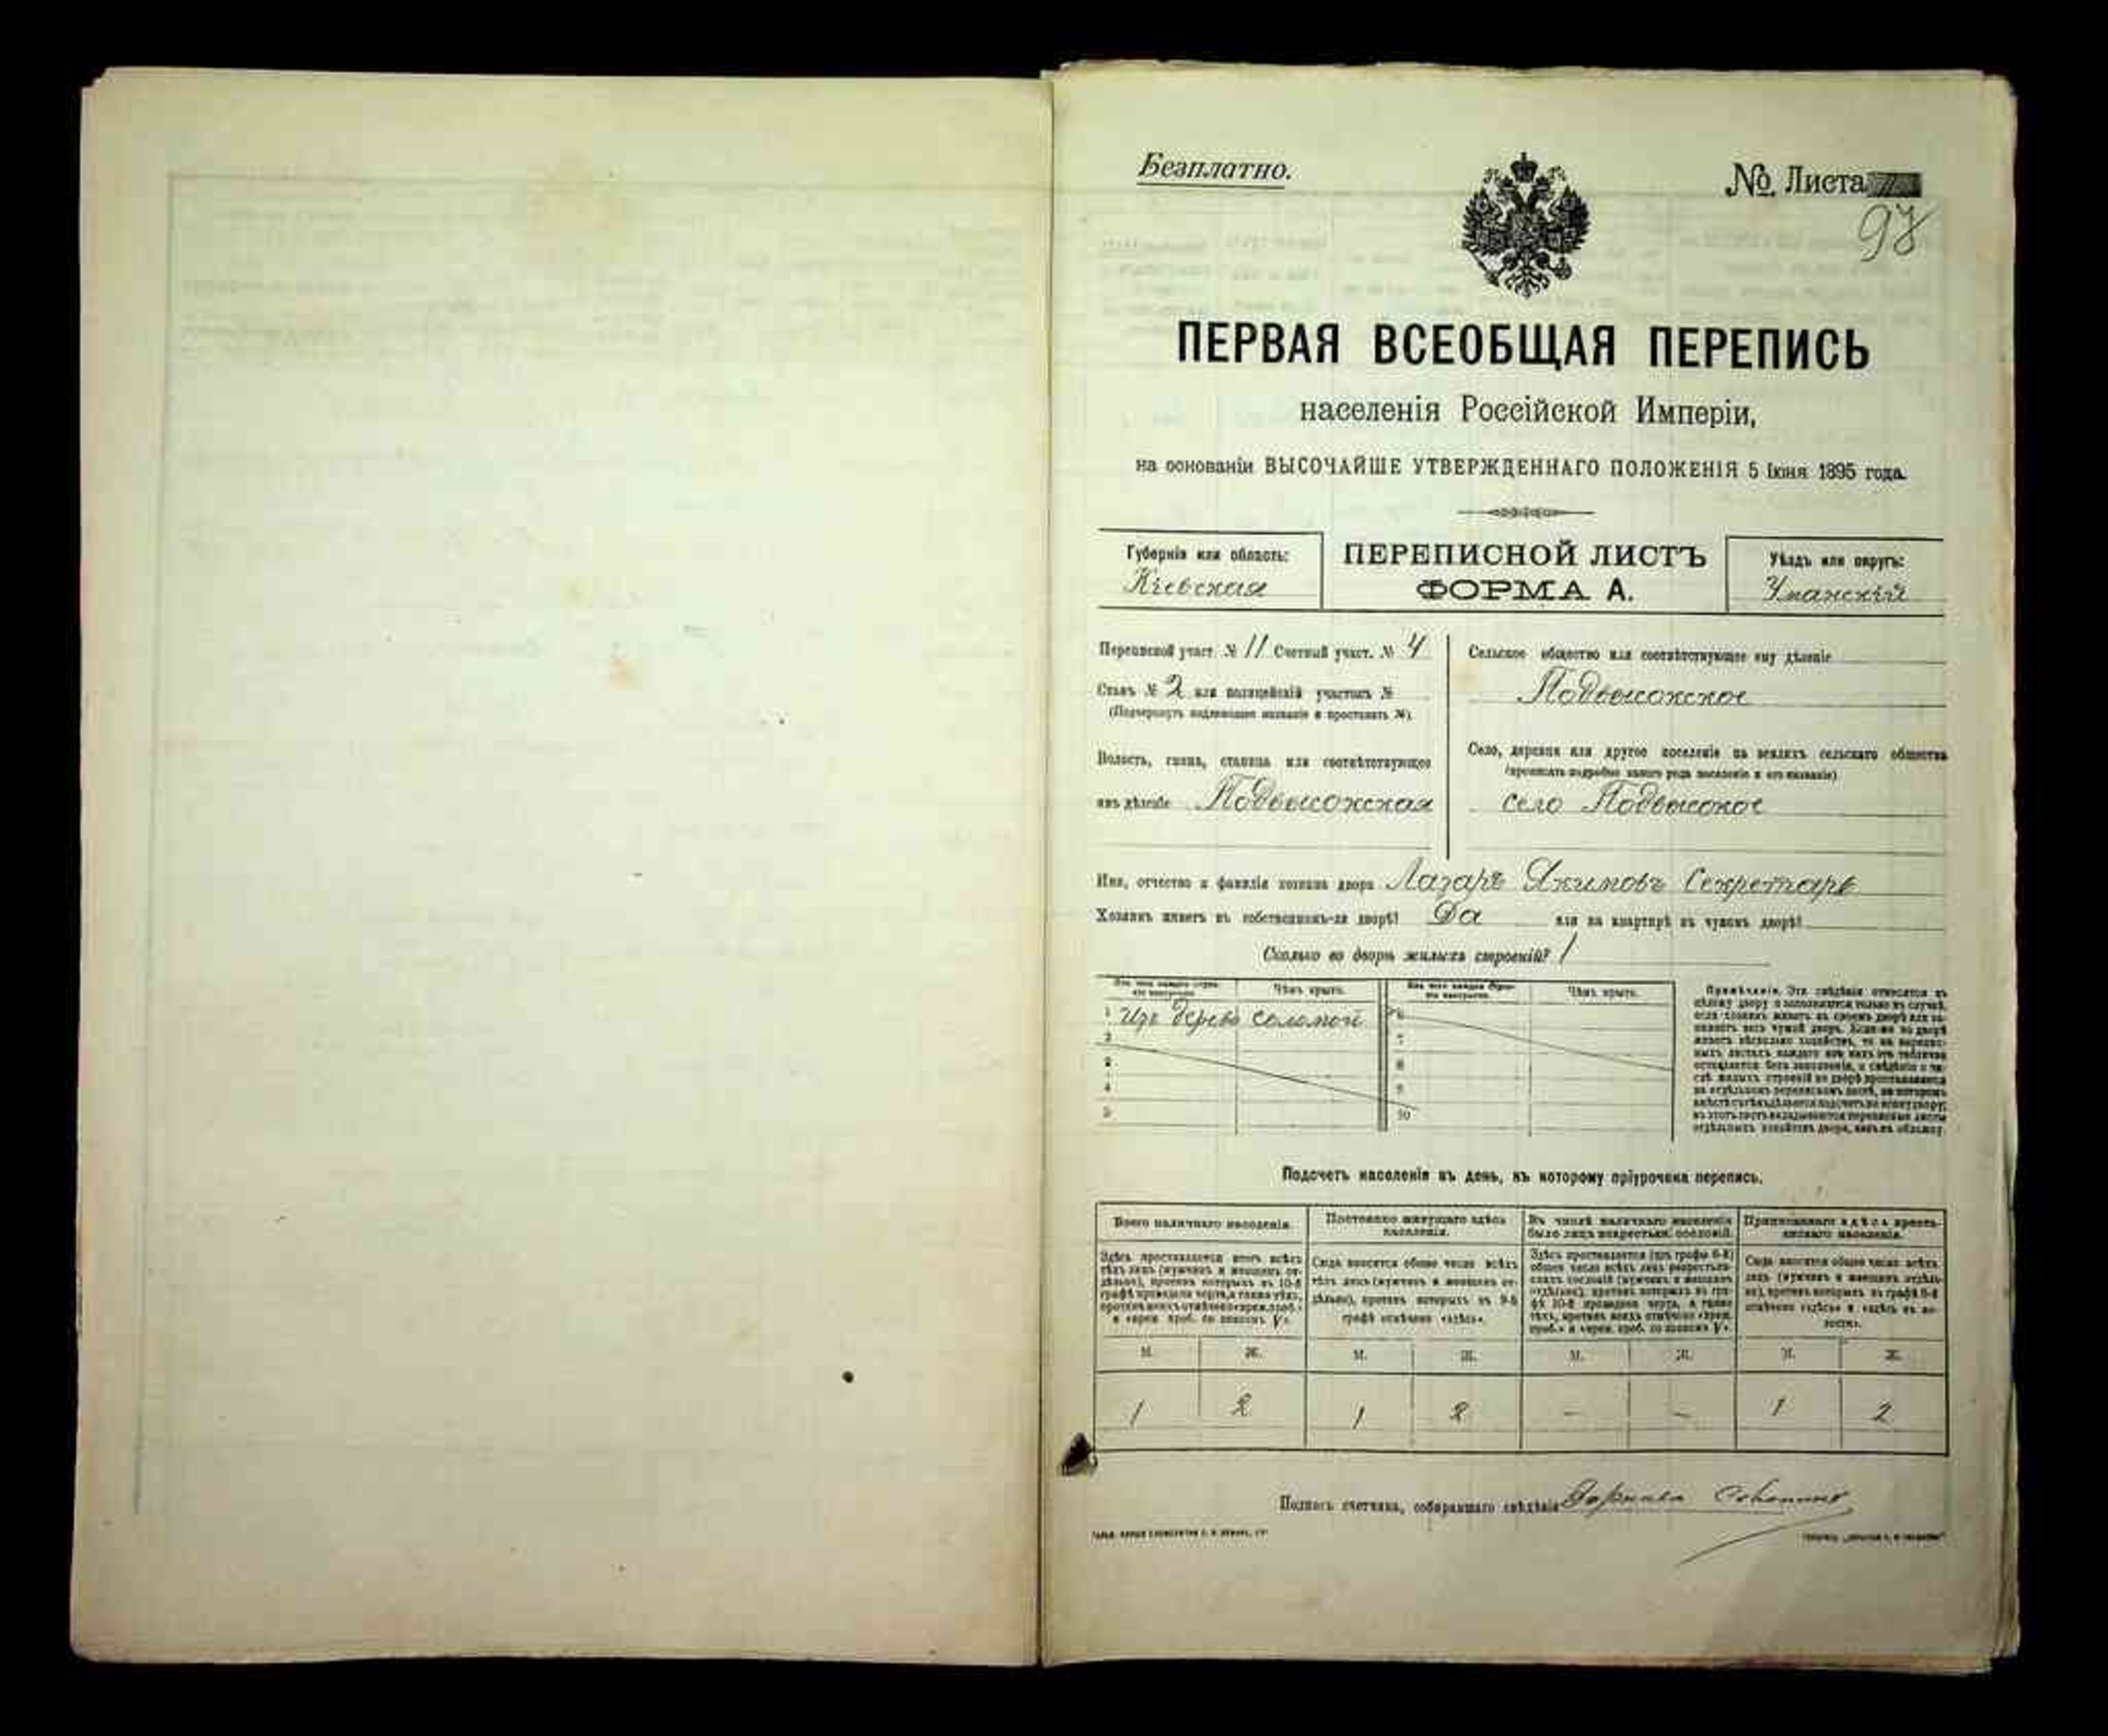 Безплатно.
№ Листа
97
ПЕРВАЯ ВСЕОБЩАЯ ПЕРЕПИСЬ
населенія Россійской Имперіи,
на основаніи ВЫСОЧАЙШЕ УТВЕРЖДЕННАГО ПОЛОЖЕНІЯ 5 Іюня 1895 года.
Губернія или область:
Кіевская
ПЕРЕПИСНОЙ ЛИСТЪ
ФОРМА А.
Уѣздъ или округъ:
Уманскій
Переписной участ. № 11 Счетный участ. № 4
Станъ № 2 или полицейскій участокъ №
(Подчеркнуть надлежащее названіе и проставить №).
Волость, гмина, станица или соотвѣтствующее
имъ дѣленіе Подвысокская
Сельское общество или соотвѣтствующее ему дѣленіе
Подвысокское
Село, деревня или другое поселеніе на земляхъ сельскаго общества
(прописать подробно какого рода поселеніе и его названіе)
село Подвысокое
Имя, отчество и фамилія хозяина двора Лазарь Якимовъ Секретарь
Хозяинъ живетъ въ собственномъ-ли дворѣ? Да или на квартирѣ въ чужомъ дворѣ?
Сколько во дворѣ жилыхъ строеній? 1
Изъ чего каждое строе-
ніе выстроено.
Чѣмъ крыто.
Изъ чего каждое строе-
ніе выстроено.
Чѣмъ крыто.
1 Изъ дерева соломой
2
3
4
5
6
7
8
9
10
Примѣчаніе. Эти свѣдѣнія относятся къ
цѣлому двору и заполняются только въ случаѣ,
если хозяинъ живетъ въ своемъ дворѣ или за-
нимаетъ весь чужой дворъ. Если-же во дворѣ
живетъ нѣсколько хозяйствъ, то на перепис-
ныхъ листахъ каждаго изъ нихъ эта табличка
оставляется безъ заполненія, а свѣдѣнія о чи-
слѣ жилыхъ строеній во дворѣ проставляются
на отдѣльномъ переписномъ листѣ, на которомъ
вмѣстѣ съ тѣмъ дѣлается подсчетъ по всему двору;
въ этотъ листъ вкладываются переписные листы
отдѣльныхъ хозяйствъ двора, какъ въ обложку.
Подсчетъ населенія въ день, къ которому пріурочена перепись.
Всего наличнаго населенія.
Здѣсь проставляется итогъ всѣхъ
тѣхъ лицъ (мужчинъ и женщинъ от-
дѣльно), противъ которыхъ въ 10-й
графѣ проведена черта, а также тѣхъ,
противъ коихъ отмѣчено «врем. преб.»
и «врем. преб. со знакомъ V».
Постоянно живущаго здѣсь
населенія.
Сюда вносится общее число всѣхъ
тѣхъ лицъ (мужчинъ и женщинъ от-
дѣльно), противъ которыхъ въ 9-й
графѣ отмѣчено «здѣсь».
Въ числѣ наличнаго населенія
было лицъ некрестьян. сословій.
Здѣсь проставляется (изъ графы 6-й)
общее число всѣхъ лицъ некрестьян-
скихъ сословій (мужчинъ и женщинъ
отдѣльно), противъ которыхъ въ гра-
фѣ 10-й проведена черта, а также
тѣхъ, противъ коихъ отмѣчено «врем.
преб.» и «врем. преб. со знакомъ V».
Приписаннаго здѣсь кресть-
янскаго населенія.
Сюда вносится общее число всѣхъ
лицъ (мужчинъ и женщинъ отдѣль-
но), противъ которыхъ въ графѣ 8-й
отмѣчено «здѣсь» и «здѣсь въ во-
лости».
М. Ж. М. Ж. М. Ж. М. Ж.
1 2 1 2 — — 1 2
Подпись счетчика, собиравшаго свѣдѣнія